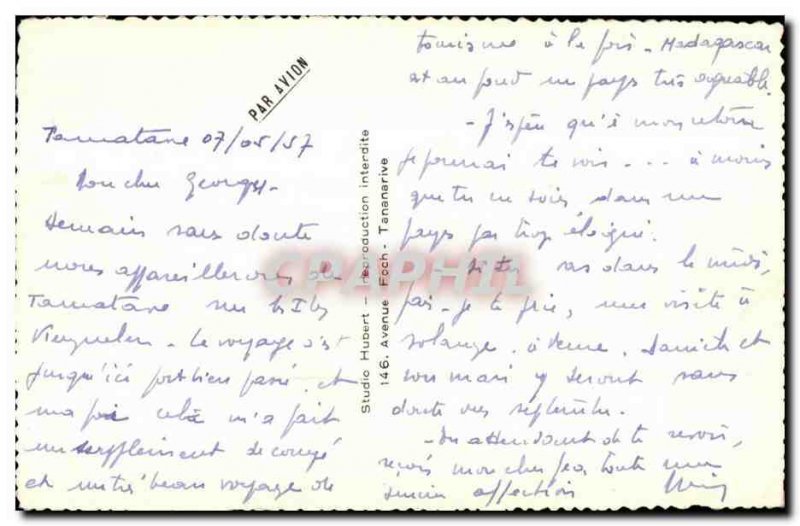 PAR AVION
Tamatave 07/05/57
Mon cher Georges -
Demain sans doute
nous appareillerons de
Tamatave sur les Iles
- Le voyage s'est
jusqu'ici fort bien passé, et
ma foi cela m'a fait
un supplément de congé
et un très beau voyage de
Studio Hubert - reproduction interdite
146, Avenue Foch - Tananarive
tourisme à la fois - Madagascar
est au fond un pays très agréable.
- J'espère qu'à mon retour
je pourrai te voir ... à moins
que tu ne sois dans un
pays par trop éloigné.
- Si tu vas dans le midi,
fais-je te prie, une visite à
Solange. à et
son mari y seront sans
doute vers septembre.
- En attendant de te revoir,
reçois mon cher toute une
affection
CPAPHIL